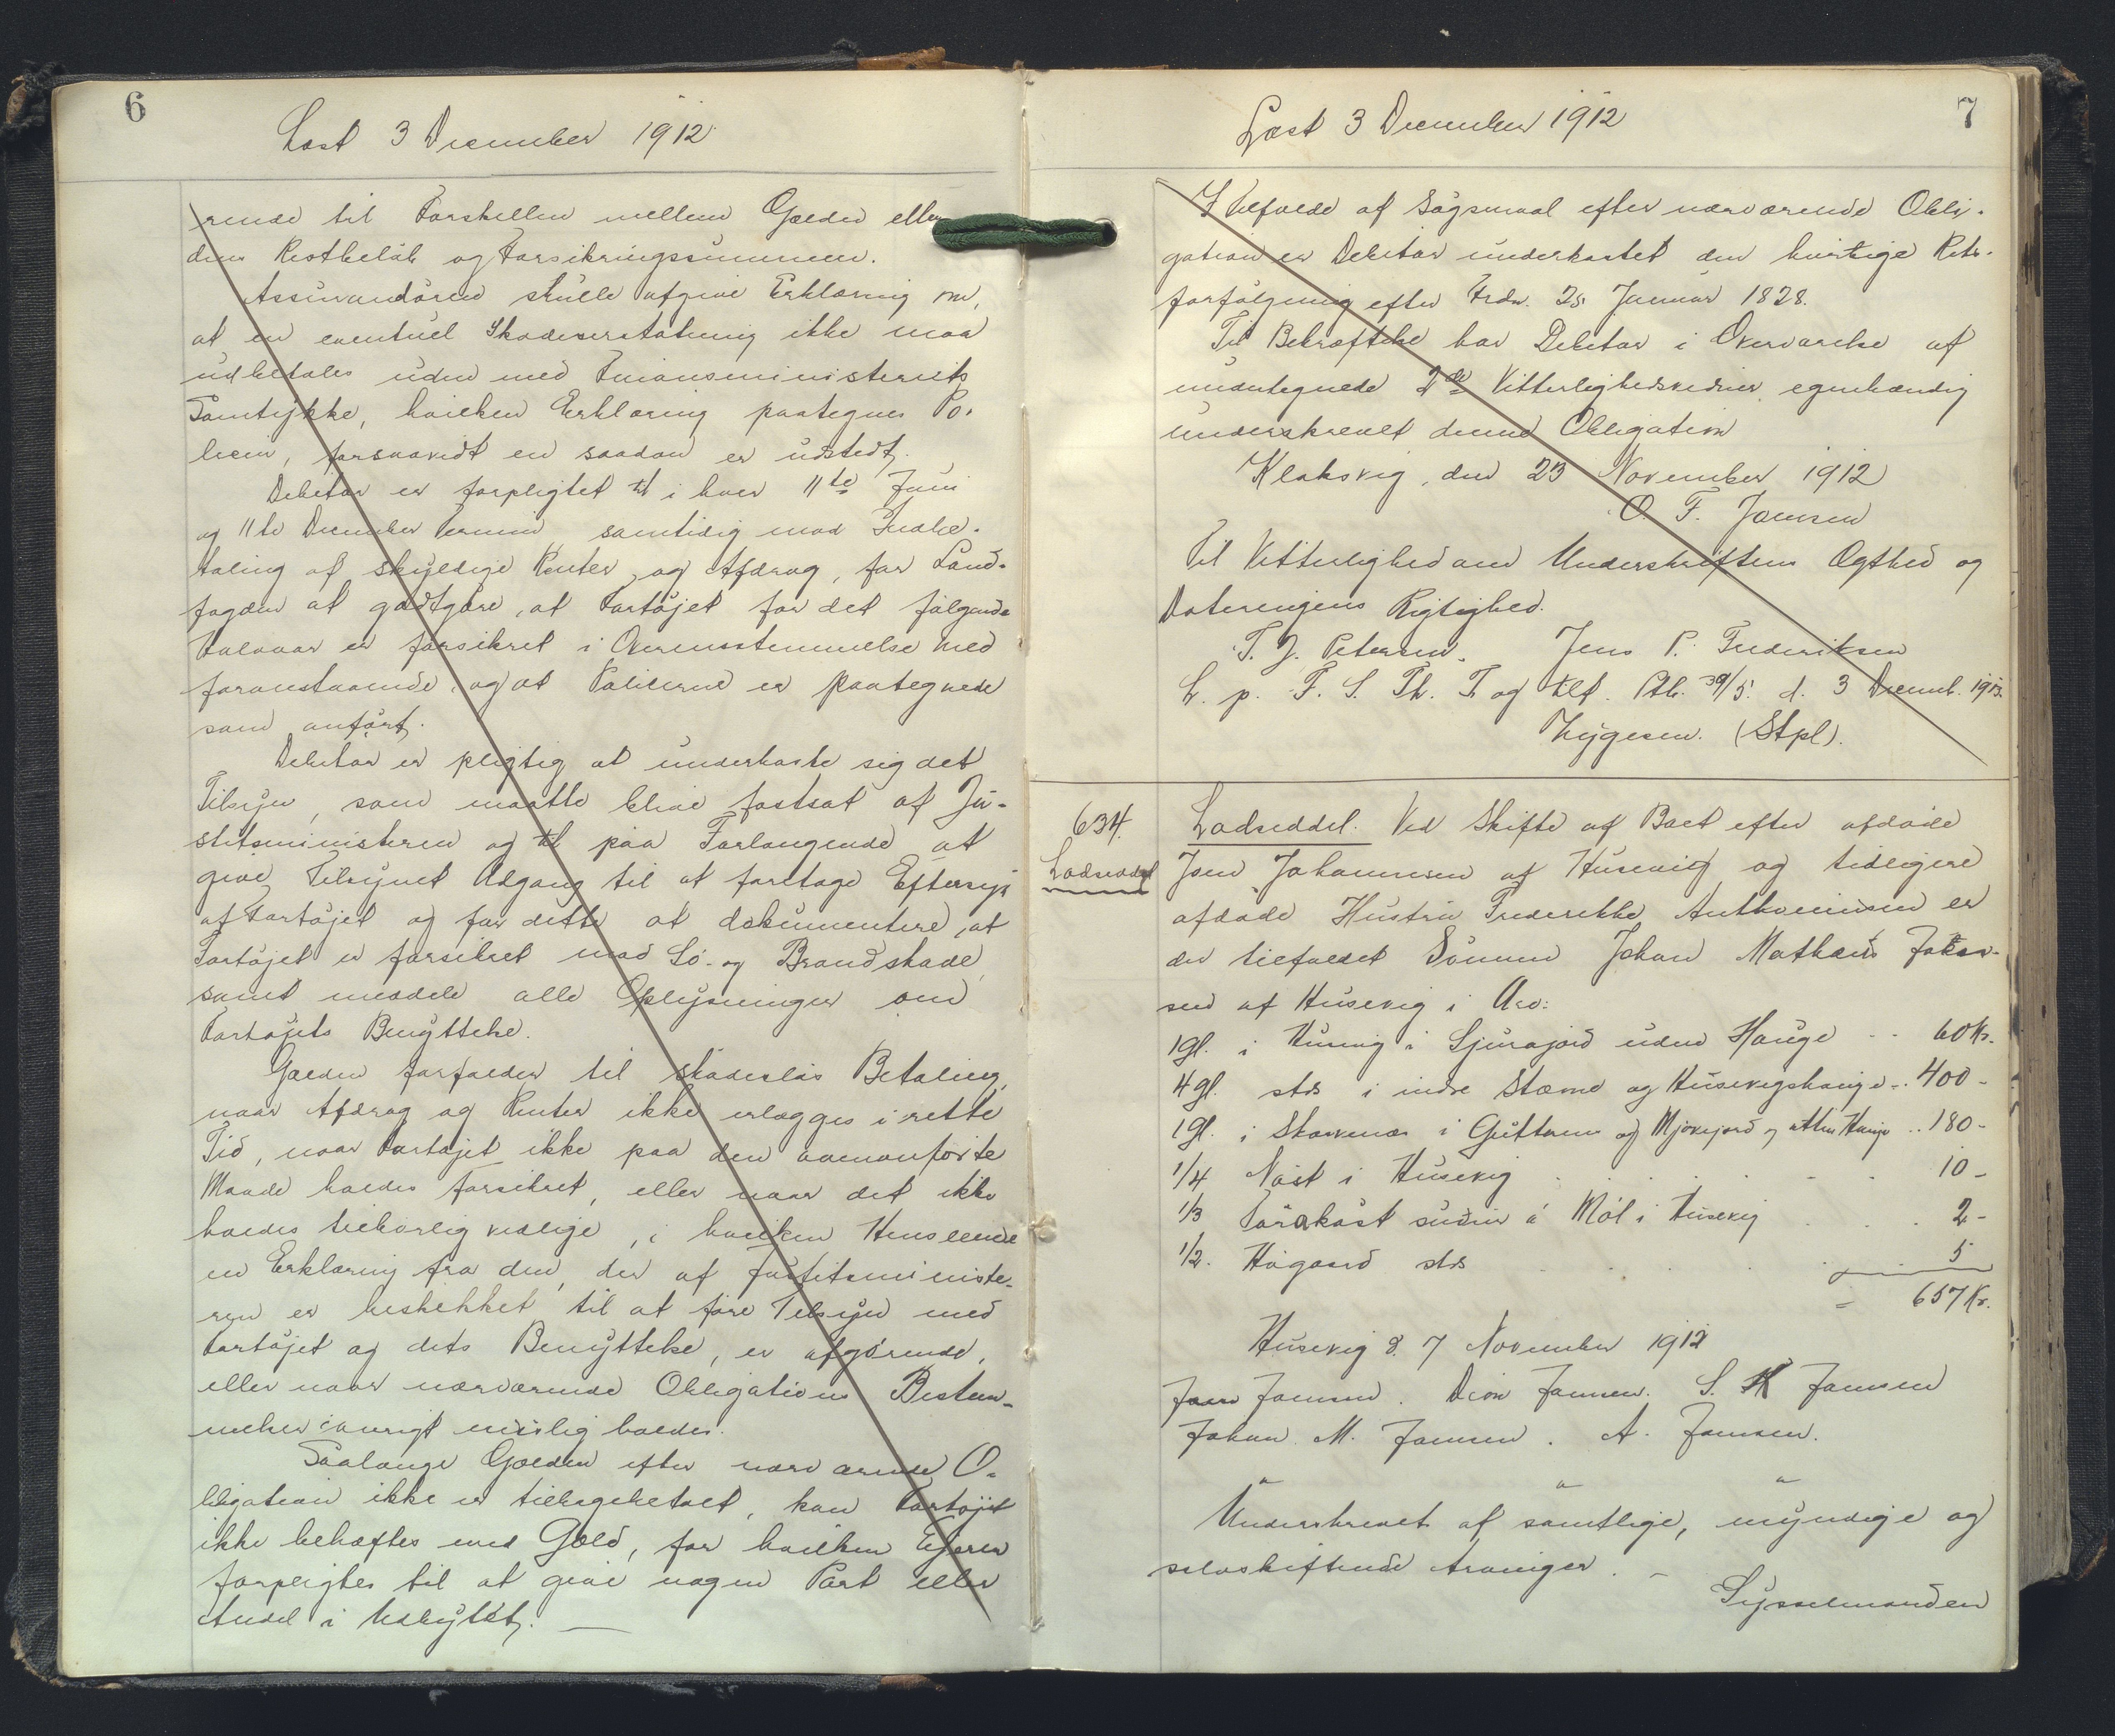 6
Læst 3 December 1912
rende til Forskellen mellem Gælden eller
dens Restbeløb og Forsikringssummen.
Assurandøren skulle afgive Erklæring om,
at en eventuel Skadeserstatning ikke maa
udbetales uden med Finansministeriets
Samtykke, hvilken Erklæring paategnes Po-
licen, forsaavidt en saadan er udstedt.
Debitor er forpligtet til i hver 11te Juni
og 11te December Termin samtidig med Indbe-
taling af skyldige Renter og Afdrag, for Land-
fogden at godtgøre, at Fartøjet for det følgende
Halvaar er forsikret i Overensstemmelse med
foranstaaende, og at Policerne er paategnede
som anført.
Debitor er pligtig at underkaste sig det
Tilsyn, som maatte blive fastsat af Ju-
stitsministeren og til paa Forlangende at
give Tilsynet Adgang til at foretage Eftersyn
af Fartøjet og for dette at dokumentere, at
Fartøjet er forsikret mod Sø- og Brandskade,
samt meddele alle Oplysninger om
Fartøjets Benyttelse.
Gælden forfalder til skadesløs Betaling,
naar Afdrag og Renter ikke erlægges i rette
Tid, naar Fartøjet ikke paa den ovenanførte
Maade holdes forsikret, eller naar det ikke
holdes tilbørlig vedlige, i hvilken Henseende
en Erklæring fra den, der af Justitsministe-
ren er beskikket til at føre Tilsyn med
Fartøjet og dets Benyttelse, er afgørende,
eller naar nærværende Obligations Bestem-
melser iøvrigt misligholdes.
Saalænge Gælden efter nærværende O-
bligation ikke er tilbagebetalt, kan Fartøjet
ikke behæftes med Gæld, for hvilken Ejeren
forpligtes til at give nogen Part eller
Andel i Udbyttet. —
7
Læst 3 December 1912
I Tilfælde af Søgsmaal efter nærværende Obli-
gation er Debitor underkastet den hurtige Rets-
forfølgning efter Frdn. 25 Januar 1828.
Til Bekræftelse har Debitor i Overværelse af
undertegnede 2de Vitterlighedsvidner egenhændig
underskrevet denne Obligation
Klaksvig, den 23 November 1912
O. F. Joensen
Til Vitterlighed om Underskriftens Ægthed og
Dateringens Rigtighed.
T. J. Petersen. Jens P. Frederiksen
L. p. F. S. Th. T. og tilf. Ptb. 39/5. d. 3 Decemb. 1912.
Thygesen. (Stpl).
634.
Lodseddel
Lodseddel. Ved Skifte af Boet efter afdøde
Joen Johannesen af Husevig og tidligere
afdøde Hustru Frederikke Anthoniusen er
der tilfaldet Sønnen Johan Mathæus Joen-
sen af Husevig i Arv:
1 gl. i Husevig i Sjurajord uden Hauge - - 60 Kr.
4 gl. stds i indre Stæmo og Husevigshauge - . 400 -
1 gl. i Skarvenæs i Guttorms og Mjovejord og Hauge .. 180 -
1/4 Nøst i Husevig . . . . - - 10 -
1/3 Torvkast sudur á Mól i Husevig . . . 2 -
1/2. Høgaard stds . . . . . 5
= 657 Kr.
Husevig d. 7 November 1912
Joen Joensen. Dion Joensen. S. K Joensen
Johan M. Joensen. A. Joensen.
" " "
Underskrevet af samtlige, myndige og
selvskiftende Arvinger. -
Sysselmanden